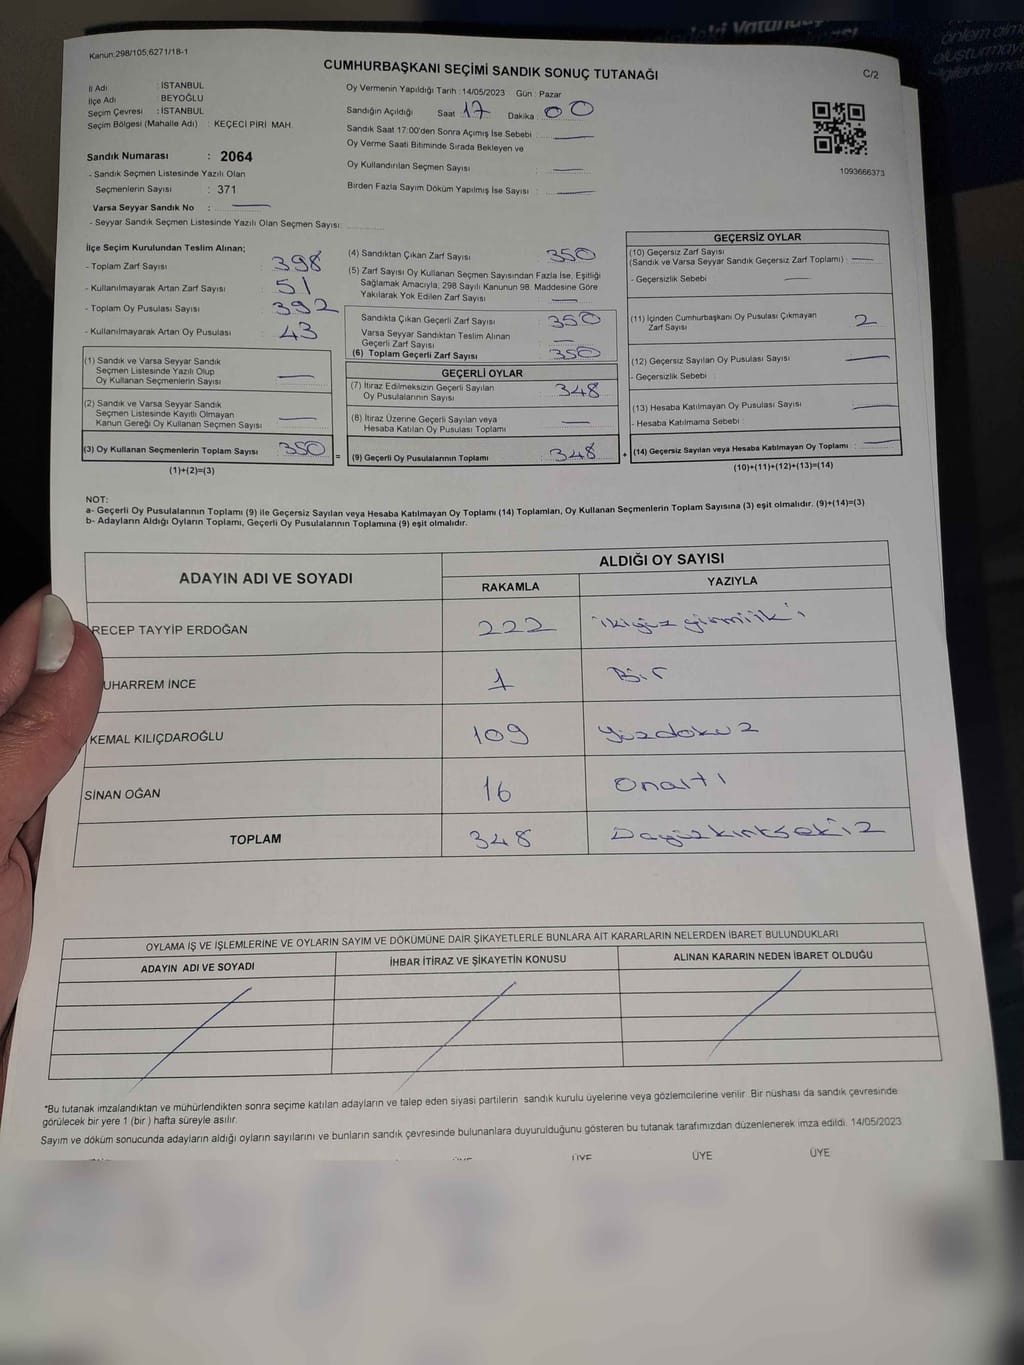 Kanun:298/105,6271/18-1
CUMHURBAŞKANI SEÇİMİ SANDIK SONUÇ TUTANAĞI
C/2
İl Adı : İSTANBUL
İlçe Adı : BEYOĞLU
Seçim Çevresi : İSTANBUL
Seçim Bölgesi (Mahalle Adı) : KEÇECİ PİRİ MAH.
Sandık Numarası : 2064
- Sandık Seçmen Listesinde Yazılı Olan
Seçmenlerin Sayısı : 371
Varsa Seyyar Sandık No :
- Seyyar Sandık Seçmen Listesinde Yazılı Olan Seçmen Sayısı:
Oy Vermenin Yapıldığı Tarih : 14/05/2023 Gün : Pazar
Sandığın Açıldığı Saat 17 Dakika : 00
Sandık Saat 17:00'den Sonra Açımış İse Sebebi :
Oy Verme Saati Bitiminde Sırada Bekleyen ve
Oy Kullandırılan Seçmen Sayısı :
Birden Fazla Sayım Döküm Yapılmış İse Sayısı :
1093666373
İlçe Seçim Kurulundan Teslim Alınan;
- Toplam Zarf Sayısı : 398
- Kullanılmayarak Artan Zarf Sayısı : 51
- Toplam Oy Pusulası Sayısı : 392
- Kullanılmayarak Artan Oy Pusulası : 43
(1) Sandık ve Varsa Seyyar Sandık
Seçmen Listesinde Yazılı Olup
Oy Kullanan Seçmenlerin Sayısı :
(2) Sandık ve Varsa Seyyar Sandık
Seçmen Listesinde Kayıtlı Olmayan
Kanun Gereği Oy Kullanan Seçmen Sayısı :
(3) Oy Kullanan Seçmenlerin Toplam Sayısı : 350 =
(1)+(2)=(3)
(4) Sandıktan Çıkan Zarf Sayısı : 350
(5) Zarf Sayısı Oy Kullanan Seçmen Sayısından Fazla İse, Eşitliği
Sağlamak Amacıyla, 298 Sayılı Kanunun 98. Maddesine Göre
Yakılarak Yok Edilen Zarf Sayısı :
Sandıkta Çıkan Geçerli Zarf Sayısı : 350
Varsa Seyyar Sandıktan Teslim Alınan
Geçerli Zarf Sayısı :
(6) Toplam Geçerli Zarf Sayısı : 350
GEÇERLİ OYLAR
(7) İtiraz Edilmeksizin Geçerli Sayılan
Oy Pusulalarının Sayısı : 348
(8) İtiraz Üzerine Geçerli Sayılan veya
Hesaba Katılan Oy Pusulası Toplamı :
(9) Geçerli Oy Pusulalarının Toplamı : 348 +
GEÇERSİZ OYLAR
(10) Geçersiz Zarf Sayısı
(Sandık ve Varsa Seyyar Sandık Geçersiz Zarf Toplamı) :
- Geçersizlik Sebebi :
(11) İçinden Cumhurbaşkanı Oy Pusulası Çıkmayan
Zarf Sayısı : 2
(12) Geçersiz Sayılan Oy Pusulası Sayısı :
- Geçersizlik Sebebi :
(13) Hesaba Katılmayan Oy Pusulası Sayısı :
- Hesaba Katılmama Sebebi :
(14) Geçersiz Sayılan veya Hesaba Katılmayan Oy Toplamı :
(10)+(11)+(12)+(13)=(14)
NOT:
a- Geçerli Oy Pusulalarının Toplamı (9) ile Geçersiz Sayılan veya Hesaba Katılmayan Oy Toplamı (14) Toplamları, Oy Kullanan Seçmenlerin Toplam Sayısına (3) eşit olmalıdır. (9)+(14)=(3)
b- Adayların Aldığı Oyların Toplamı, Geçerli Oy Pusulalarının Toplamına (9) eşit olmalıdır.
ADAYIN ADI VE SOYADI
ALDIĞI OY SAYISI
RAKAMLA YAZIYLA
RECEP TAYYİP ERDOĞAN 222 ikiyüz yirmiiki
UHARREM İNCE 1 Bir
KEMAL KILIÇDAROĞLU 109 yüzdokuz
SİNAN OĞAN 16 Onaltı
TOPLAM 348
OYLAMA İŞ VE İŞLEMLERİNE VE OYLARIN SAYIM VE DÖKÜMÜNE DAİR ŞİKAYETLERLE BUNLARA AİT KARARLARIN NELERDEN İBARET BULUNDUKLARI
ADAYIN ADI VE SOYADI İHBAR İTİRAZ VE ŞİKAYETİN KONUSU ALINAN KARARIN NEDEN İBARET OLDUĞU
*Bu tutanak imzalandıktan ve mühürlendikten sonra seçime katılan adayların ve talep eden siyasi partilerin sandık kurulu üyelerine veya gözlemcilerine verilir. Bir nüshası da sandık çevresinde
görülecek bir yere 1 (bir) hafta süreyle asılır.
Sayım ve döküm sonucunda adayların aldığı oyların sayılarını ve bunların sandık çevresinde bulunanlara duyurulduğunu gösteren bu tutanak tarafımızdan düzenlenerek imza edildi. 14/05/2023
ÜYE ÜYE ÜYE